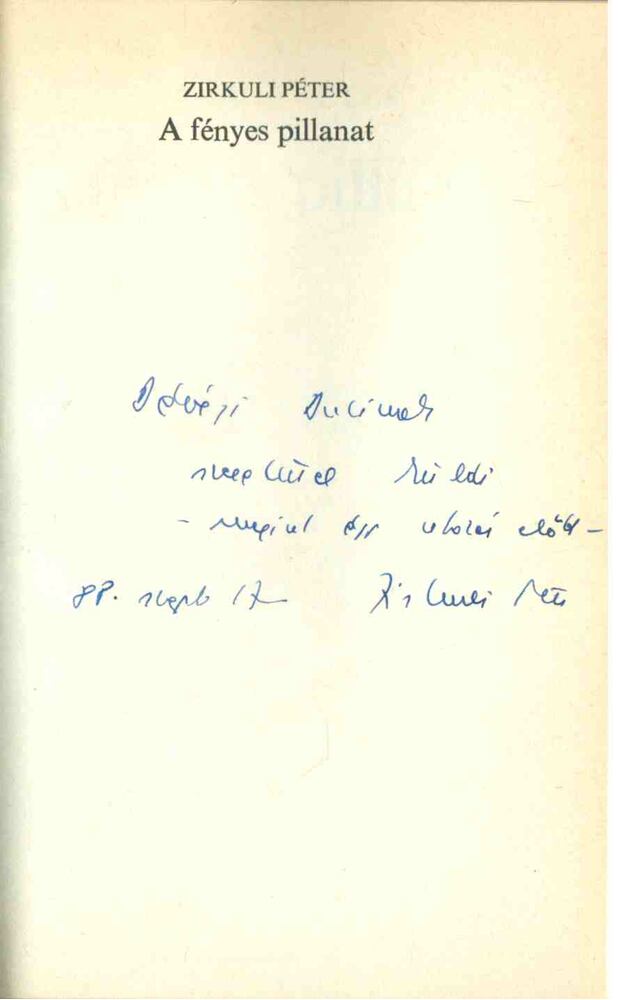 ZIRKULI PÉTER
A fényes pillanat
szeretettel küldi
- megint egy utazás előtt -
88. szept 17 Zirkuli Péter